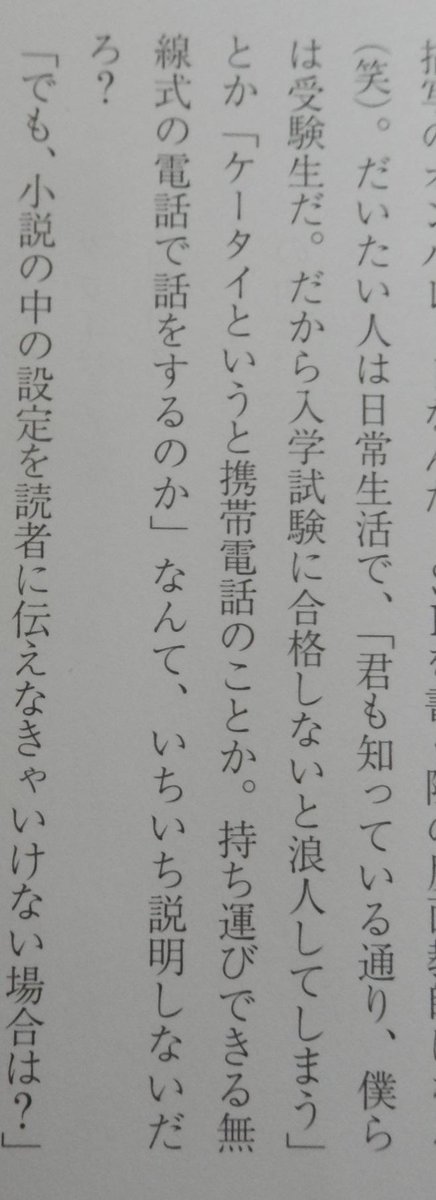 (笑)。だいたい人は日常生活で、「君も知っている通り、僕ら
は受験生だ。だから入学試験に合格しないと浪人してしまう」
とか「ケータイというと携帯電話のことか。持ち運びできる無
線式の電話で話をするのか」なんて、いちいち説明しないだ
ろ?
「でも、小説の中の設定を読者に伝えなきゃいけない場合は?」